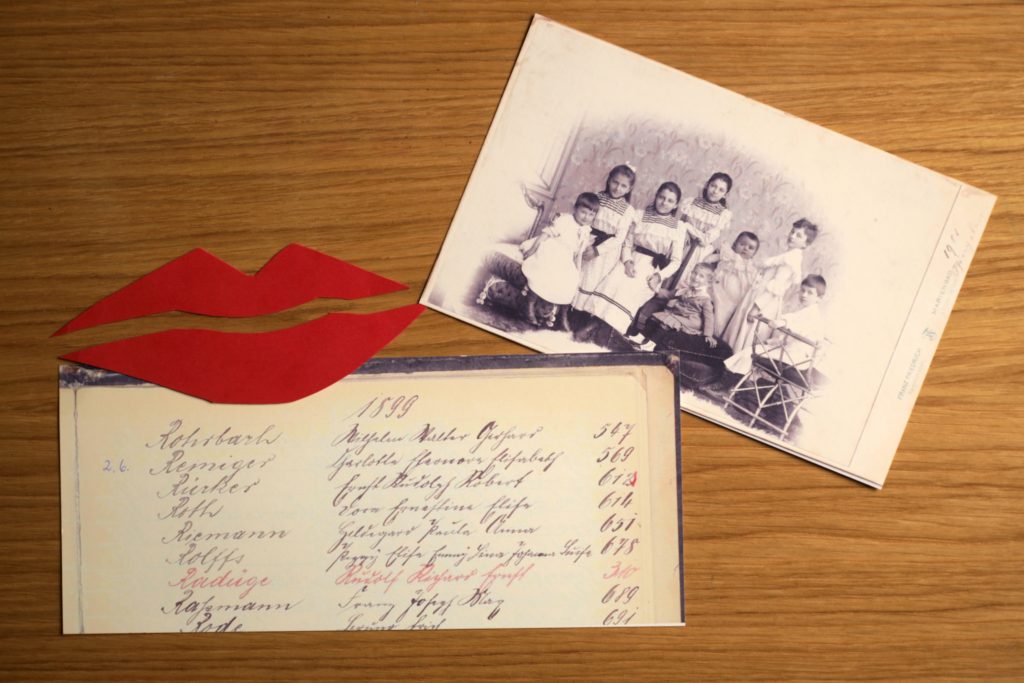 1899
Rohrbach Wilhelm Walter Gerhard 547
2.6. Remiger Charlotte Eleonore Elisabeth 569
Rieker Ernst Rudolph Robert 612
Roth Dora Ernestine Elise 614
Riemann Hildegard Paula Anna 651
Rolffs Peggy Elise Emmy Lina Johanna Luise 678
Radüge Rudolf Richard Ernst 310
Franz Joseph Max 689
Rode 691
FRANZ FRIEDRICH